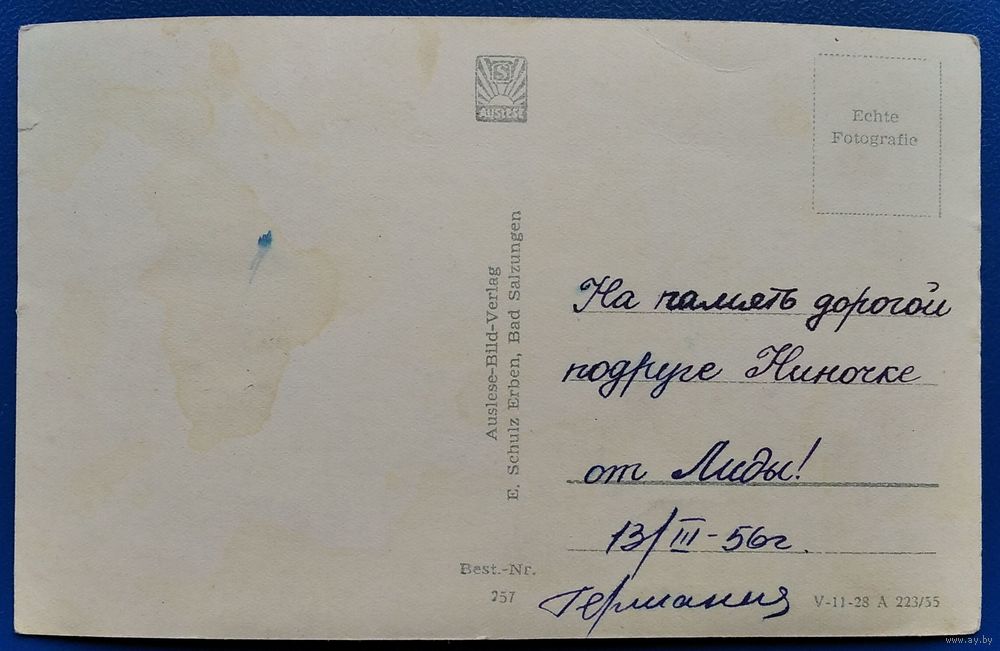 S
AUSLESE
Echte
Fotografie
Auslese-Bild-Verlag
E. Schulz Erben, Bad Salzungen
На память дорогой
подруге Ниночке
от Лиды!
13/III-56г.
Германия
Best.-Nr.
257
V-11-28 A 223/55
www.ay.by